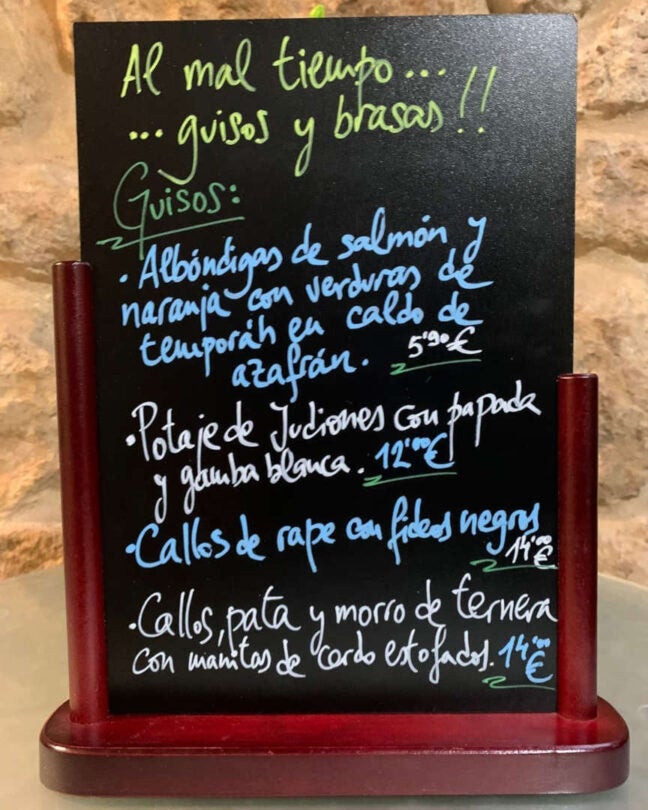 Al mal tiempo...
...guisos y brasas!!
Guisos:
· Albóndigas de salmón y
naranja con verduras de
temporáh en caldo de
azafrán. 5'90€
· Potaje de Judiones con papada
y gamba blanca. 12'00€
· Callos de rape con fideos negros
14'00€
· Callos, pata y morro de ternera
con manitas de cerdo estofados. 14'00€